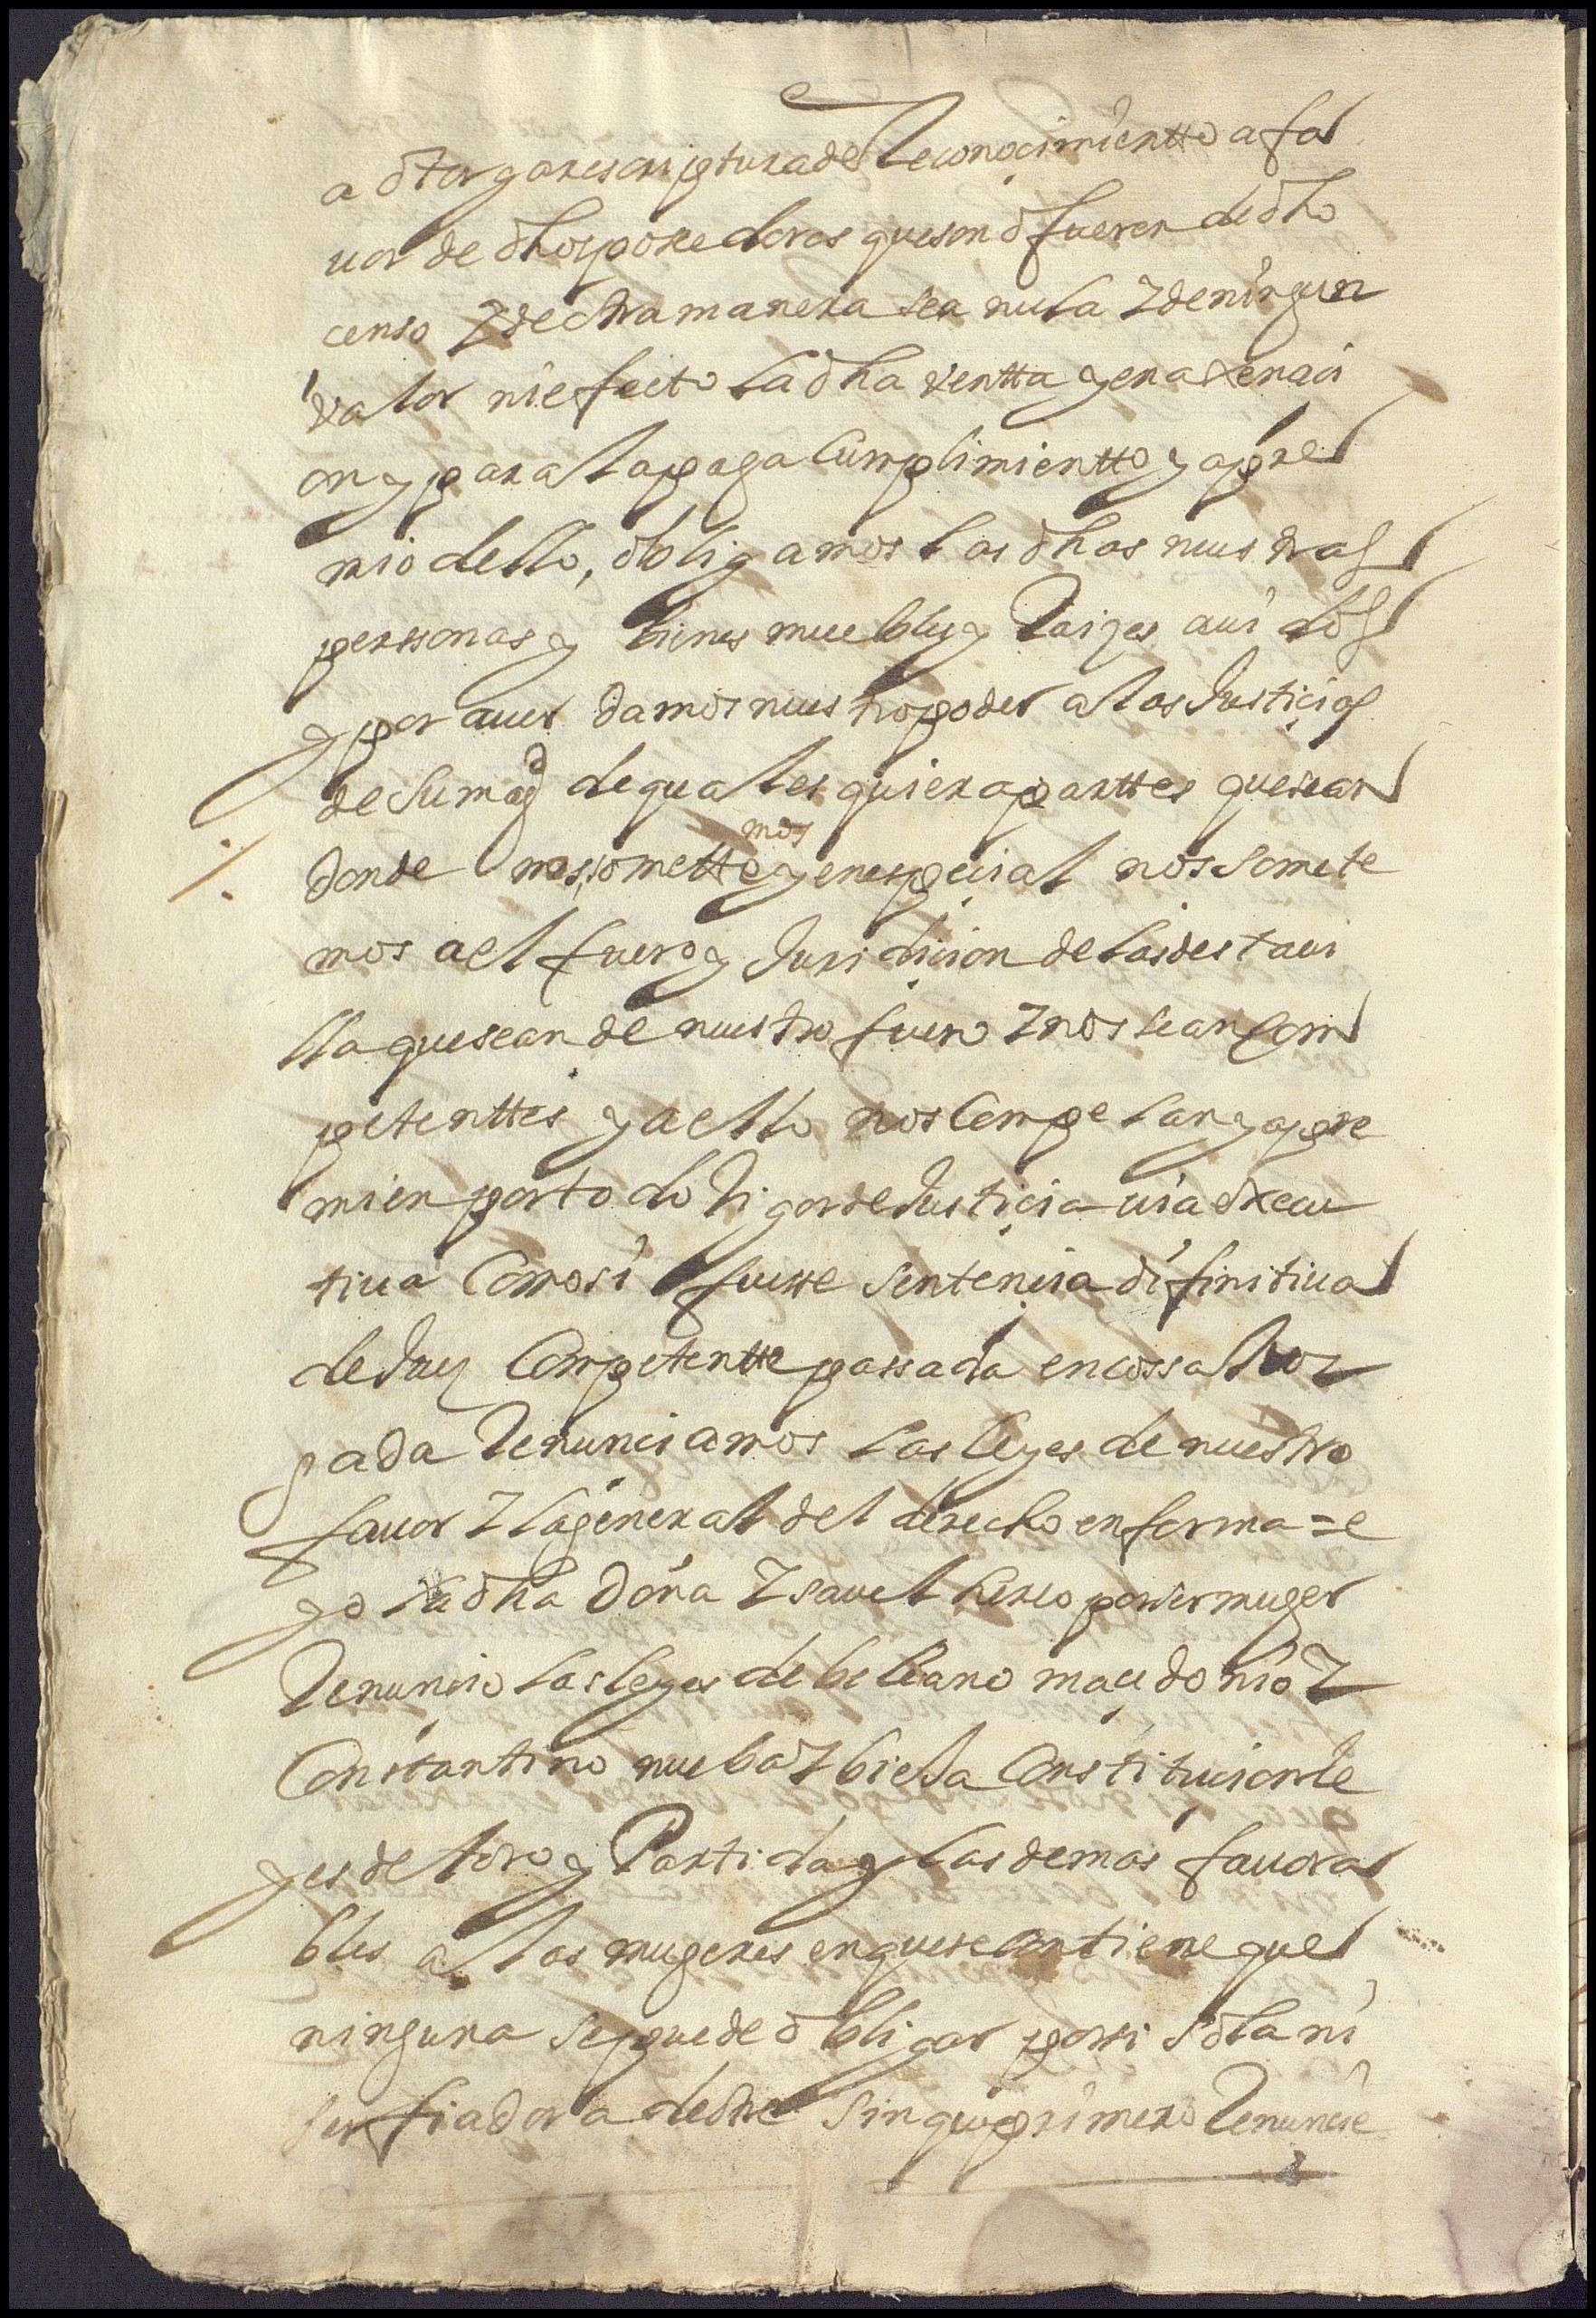 a otorgar escriptura de Reconocimientto a fa
uor de dhos posedores que son o fueren de dho
censo Y de otra manera sea nula Y de ningun
valor ni efecto la dha ventta y enaxenaci
on y para la paga Cumplimientto y apre
mio dello, obligamos las dhas nuestras
perssonas y bienes muebles y Raizes auidos
y por auer damos nuestro poder a las Justicias
de Su magd de qualesquiera parttes que sean
mos
donde nos sometto y en especial nos somete
mos a el fuero y Juridicion de las desta ui
lla que sean de nuestro fuero Y nos sean Com
petenttes y a ello nos Compelan y apre
mien por todo Rigor de Justicia uia executiua
tiua Como si fuesse Sentencia difinitiua
de Juez Competentte passada en cossa Juz
gada Renunciamos las leyes de nuestro
fauor Y la general del derecho en forma = e
yo la dha Doña Ysauel por ser muger
Renuncio las leyes de beleano macedonio Y
Constantino nueba Y bieja Constitucion le
yes de toro y Partida y las demas fauora
bles a las mugeres en que se contiene que
ninguna se puede obligar por si sola ni
ser fiadora de otre sin que primero Renuncie